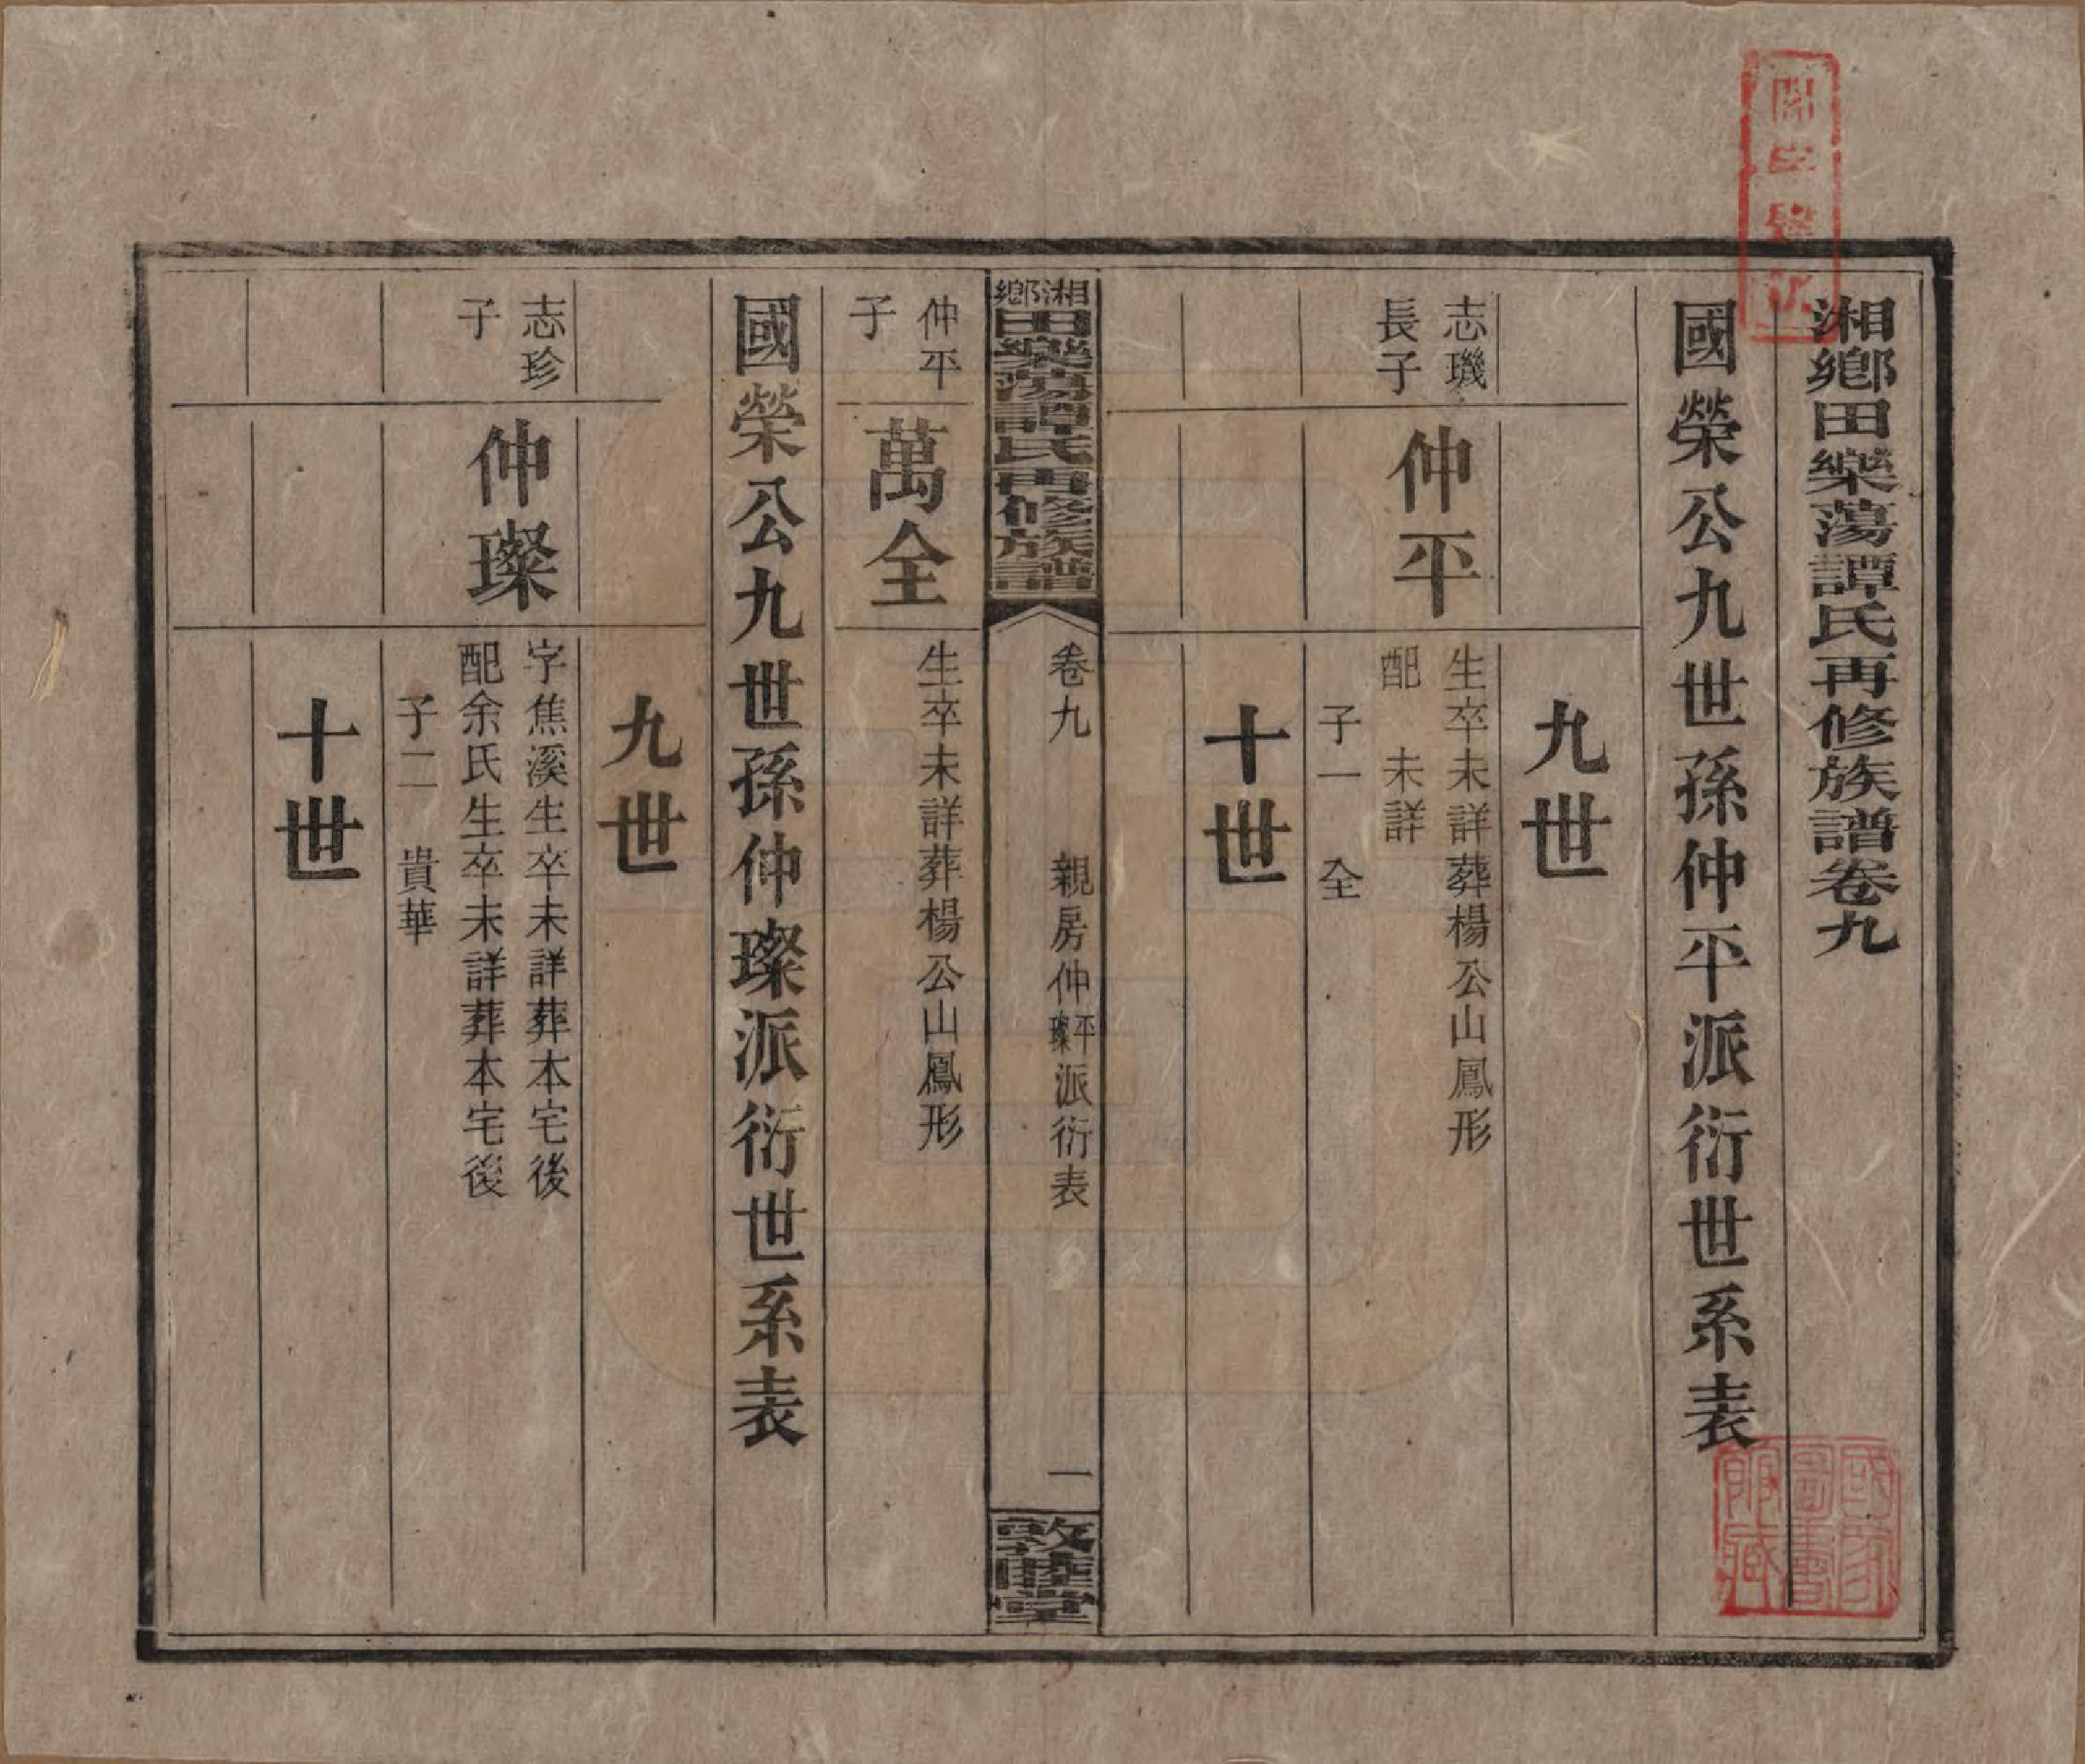 湘鄉田樂蕩譚氏再修族譜卷九
國榮公九世孫仲平派衍世系表
九世
志璣
長子
仲平
生卒未詳葬楊公山鳳形
配　未詳
子一　全
十世
湘鄉田樂蕩譚氏再修族譜
卷九　親房仲平璨派衍表
一
敦睦堂
仲平
子
萬全
生卒未詳葬楊公山鳳形
國榮公九世孫仲璨派衍世系表
九世
志珍
子
仲璨
字焦溪生卒未詳葬本宅後
配余氏生卒未詳葬本宅後
子二　貴華
十世
國家圖書館藏